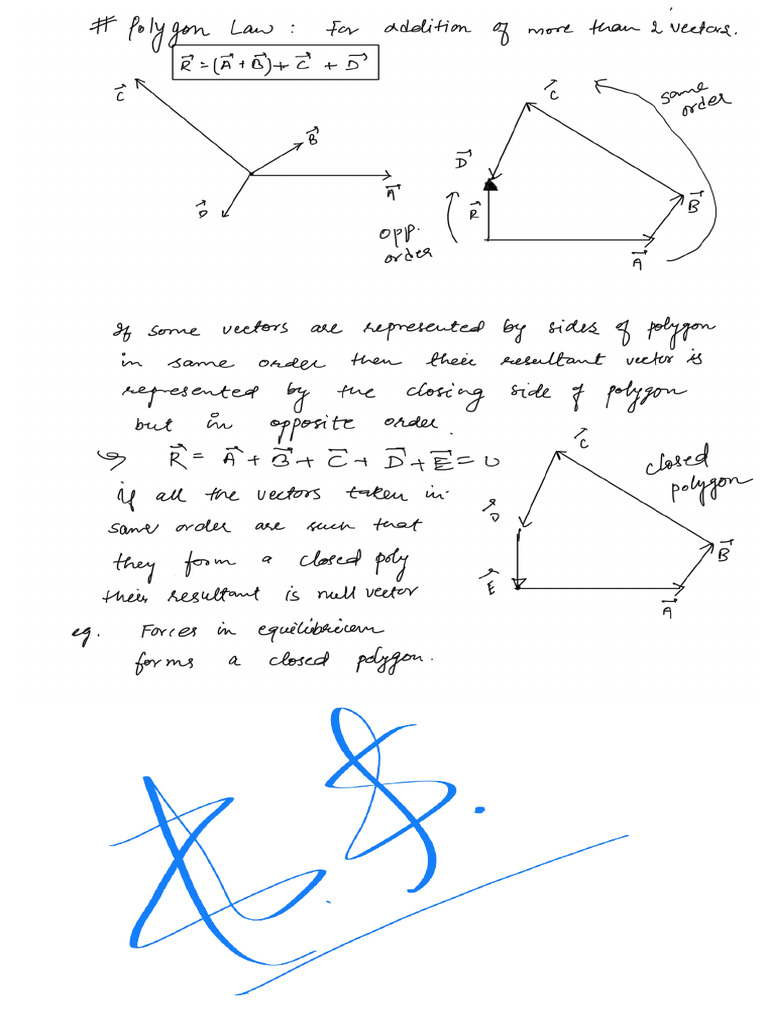 # Polygon Law : For addition of more than 2 vectors.
R⃗ = (A⃗ + B⃗) + C⃗ + D⃗
C⃗
B⃗
A⃗
D⃗
C⃗
same
order
D⃗
R⃗
B⃗
opp.
order
A⃗
If some vectors are represented by sides of polygon
in same order then their resultant vector is
represented by the closing side of polygon
but in opposite order.
↪ R⃗ = A⃗ + B⃗ + C⃗ + D⃗ + E⃗ = 0
C⃗
closed
polygon
if all the vectors taken in
D⃗
same order are such that
B⃗
they form a closed poly
E⃗
their resultant is null vector
A⃗
eg. Forces in equilibrium
forms a closed polygon.